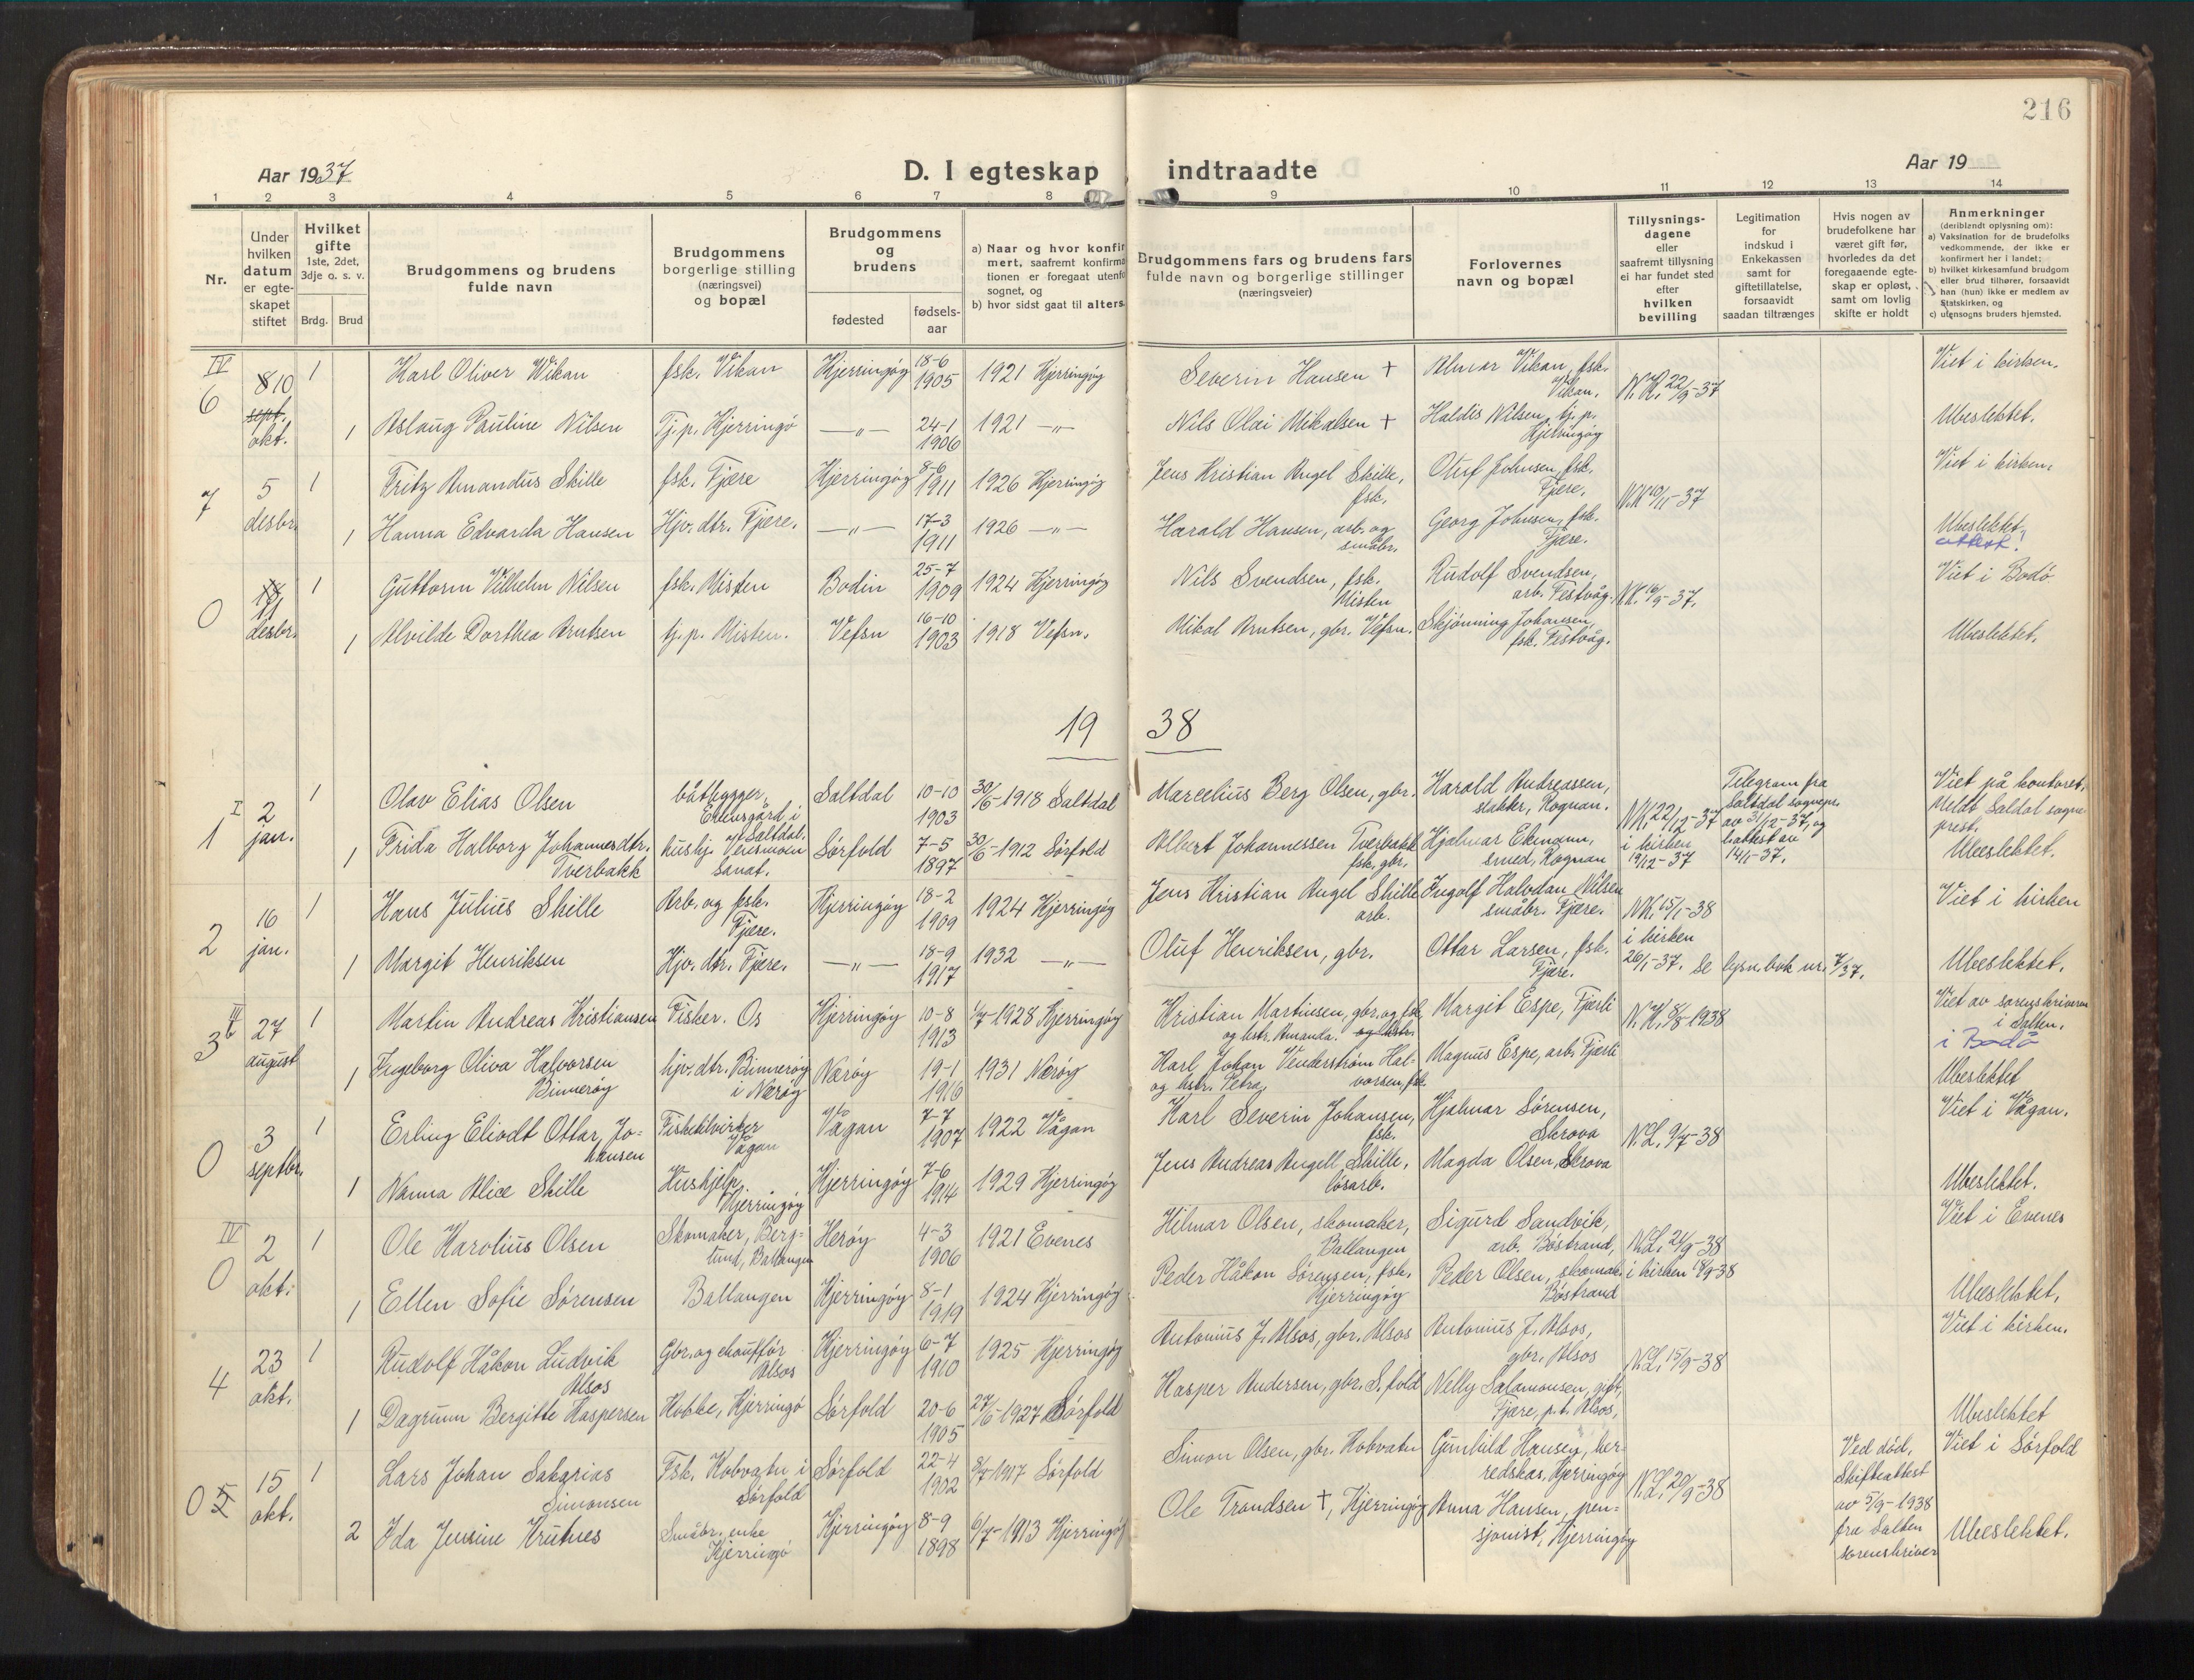 216
Aar 1937
D. I egteskap indtraadte
Aar 19
1 2 3 4 5 6 7 8 9 10 11 12 13 14
Nr.
Under hvilken datum er egteskapet stiftet
Hvilket gifte 1ste, 2det, 3dje o. s. v.
Brdg. Brud
Brudgommens og brudens fulde navn
Brudgommens borgerlige stilling (næringsvei) og bopæl
Brudgommens og brudens
fødested
fødsels-aar
a) Naar og hvor konfirmert, saafremt konfirmationen er foregaat utenfor sognet, og
b) hvor sidst gaat til alters
Brudgommens fars og brudens fars fulde navn og borgerlige stillinger (næringsveier)
Forlovernes navn og bopæl
Tillysningsdagene eller saafremt tillysning ei har fundet sted efter hvilken bevilling
Legitimation for indskud i Enkekassen samt for giftetillatelse, forsaavidt saadan tiltrænges
Hvis nogen av brudefolkene har været gift før, hvorledes da det foregaaende egteskap er opløst, samt om lovlig skifte er holdt
Anmerkninger (deriblandt oplysning om):
a) Vaksination for de brudefolks vedkommende, der ikke er konfirmert her i landet;
b) hvilket kirkesamfund brudgom eller brud tilhører, forsaavidt han (hun) ikke er medlem av Statskirken, og
c) utensogns bruders hjemsted.
IV
6 10 sept. okt. 1 Karl Oliver Wikan fsk. Vikan Kjerringøy 18-6 1905 1921 Kjerringøy Severin Hansen + Almar Vikan, fsk. Vikan. N.K. 22/9-37 Viet i kirken.
1 Aslaug Pauline Nilsen Tj.p. Kjerringø —"— 24-1 1906 1921 —"— Nils Olai Mikalsen + Haldis Nilsen, tj.p. Kjerringøy Ubeslektet.
7 5 desbr. 1 Fritz Amandus Skille fsk. Fjære Kjerringøy 8-6 1911 1926 Kjerringøy Jens Kristian Angel Skille, fsk. Oluf Johnsen, fsk. Fjære. N.K. 10/11-37 Viet i kirken.
1 Hanna Edvarda Hansen Hjv. dtr. Fjære. —"— 17-3 1911 1926 —"— Harald Hansen, arb. og småbr. Georg Johnsen, fsk. Fjære. Ubeslektet. attest!
0 11 desbr. 1 Guttorm Vilhelm Nilsen fsk. Misten Bodin 25-7 1909 1924 Kjerringøy Nils Svendsen, fsk. Misten Rudolf Svendsen, arb. Festvåg. N.K. 16/9-37. Viet i Bodø
1 Alvilde Dorthea Knutsen tj.p. Misten. Vefsn 16-10 1903 1918 Vefsn. Mikal Knutsen, gbr. Vefsn. Skjønning Johansen, fsk. Festvåg. Ubeslektet.
1938
I
1 2 jan. 1 Olav Elias Olsen båtbygger, Ellensgård i Saltdal. Saltdal 10-10 1903 30/6-1918 Saltdal Marcelius Berg Olsen, gbr. Harald Andreassen, slakter, Rognan. N.K. 22/12-37 Telegram fra Saltdal sognepr. av 31/12-37, og attest av 14/1-37. Viet på kontoret. Meldt Saldal sogneprest.
1 Frida Halborg Johannesdtr. Tverbakk hushj. Vensmoen sanat. Sørfold 7-5 1897 30/6-1912 Sørfold Albert Johannessen Tverbakk fsk. gbr. Hjalmar Ekmann, smed, Rognan i kirken 19/12-37 Ubeslektet.
2 16 jan. 1 Hans Julius Skille Arb. og fsk. Fjære. Kjerringøy 18-2 1909 1924 Kjerringøy Jens Kristian Angel Skille arb. Ingolf Halvdan Nilsen småbr. Fjære. N.K. 15/1-38 Viet i kirken
1 Margit Henriksen Hjv. dtr. Fjære. —"— 18-9 1917 1932 —"— Oluf Henriksen, gbr. Ottar Larsen, fsk. Fjære. i kirken 26/1-37. se lysn. bok nr. 7/37. Ubeslektet.
III
3 27 august 1 Martin Andreas Kristiansen Fisker. Os Kjerringøy 10-8 1913 1/7-1928 Kjerringøy Kristian Martinsen, gbr. og fsk. og hstr. Amanda. Margit Espe, Fjærli N.K. 8/8-1938 Viet av sorenskriveren i Salten. i Bodø
1 Ingeborg Oliva Halvorsen Binnerøy hjv. dtr. Binnerøy i Nærøy Nærøy 19-1 1916 1931 Nærøy Karl Johan Venderstrøm Halvorsen, fsk. og hstr. Petra, Magnus Espe, arb. Fjærli Ubeslektet
0 3 septbr. 1 Erling Eliodt Ottar, Johansen Fisketilvirker Vågan Vågan 7-7 1907 1922 Vågan Karl Severin Johansen, fsk. Hjalmar Sørensen, Skrova N.L. 9/7-38 Viet i Vågan.
1 Nanna Alice Skille Hushjelp. Kjerringøy Kjerringøy 7-6 1914 1929 Kjerringøy Jens Andreas Angell Skille, løsarb. Magda Olsen, Skrova Ubeslektet.
IV
0 2 okt. 1 Ole Karolius Olsen Skomaker, Berglund, Ballangen Herøy 4-3 1906 1921 Evenes Hilmar Olsen, skomaker, Ballangen Sigurd Sandvik, arb. Bøstrand, N.L. 24/9-38 Viet i Evenes
1 Ellen Sofie Sørensen Ballangen Kjerringøy 8-1 1919 1924 Kjerringøy Peder Håkon Sørensen, fsk. Kjerringøy Peder Olsen, skomak. Bøstrand i kirken 18/9-38 Ubeslektet.
4 23 okt. 1 Rudolf Håkon Ludvik Alsos Gbr. og chauffør Alsos Kjerringøy 6-7 1910 1925 Kjerringøy Antonius J. Alsos, gbr. Alsos Antonius J. Alsos, gbr. Alsos N.L. 15/9-38 Viet i kirken.
1 Dagrunn Bergitte Kaspersen Kokke, Kjerringø Sørfold 20-6 1905 27/6-1927 Sørfold Kasper Andersen, gbr. S.fold Nelly Salamonsen, gift, Fjære, p.t. Alsos, Ubeslektet
0 5 15 okt. 1 Lars Johan Sakarias Simonsen Fsk. Kobvatn i Sørfold Sørfold 22-4 1902 8/7-1917 Sørfold Simon Olsen, gbr. Kobvatn Gunhild Hansen, herredskas, Kjerringøy N.L. 20/9-38 Ved død, Skifteattest av 5/9-1938 fra Salten sorenskriver Viet i Sørfold
2 Ida Jensine Krutnes Småbr. enke Kjerringø Kjerringøy 8-9 1898 6/7-1913 Kjerringøy Ole Trondsen +, Kjerringøy Anna Hansen, pensjonist, Kjerringøy Ubeslektet.